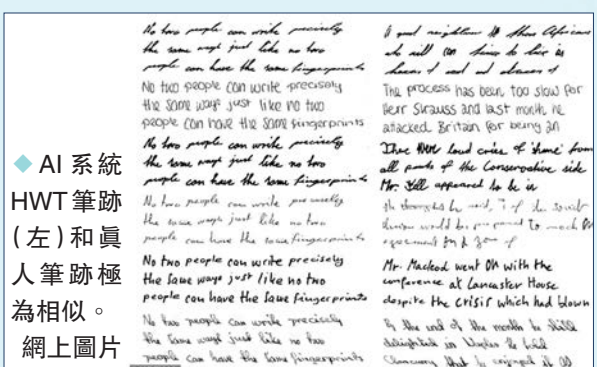 ◆ AI 系統
HWT筆跡
(左)和真
人筆跡極
為相似。
網上圖片
No two people can write precisely
the same ways just like no two
people can have the same fingerprints
No two people can write precisely
the same ways just like no two
people can have the same fingerprints
No two people can write precisely
the same ways just like no two
people can have the same fingerprints
No two people can write precisely
the same ways just like no two
people can have the same fingerprints
No two people can write precisely
the same ways just like no two
people can have the same fingerprints
No two people can write precisely
the same ways just like no two
people can have the same fingerprints
A good neighbour to those Africans
who will
The process has been too slow for
Herr Strauss and last month he
attacked Britain for being an
loud cries of 'shame' from
all parts of the Conservative side
Mr. appeared to be in
he said, if the
would be prepared to
Mr. Macleod went on with the
conference at Lancaster House
despite the crisis which had blown
By the end of the month he
delighted in he
that he enjoyed it all